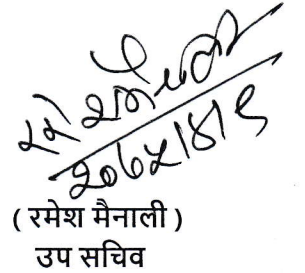 २०७५।४।९
( रमेश मैनाली )
उप सचिव